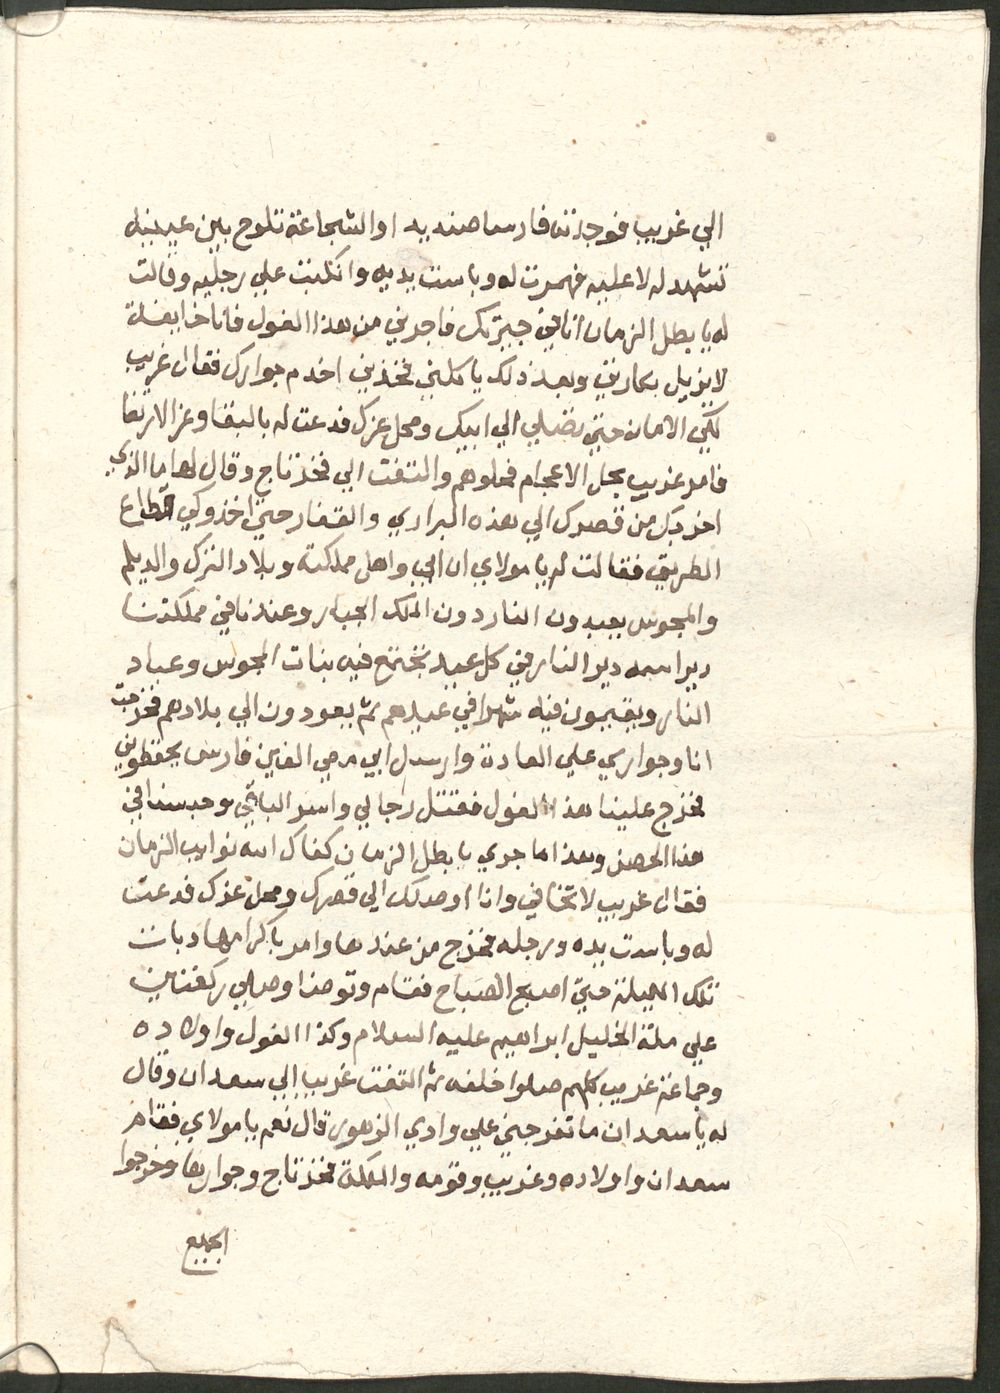 الي غريب فوجدته فارسا صنديد ا والشجاعة تلوح بين عينيه
تشهد له لا عليه فهمرت له وباست يديه وانكبت علي رجليه وقالت
له يا بطل الزمان انا في جيرتك فاجرني من هذا الغول فانا خايفة
لا يزيل بكارتي وبعد ذلك ياكلني فخذني اخدم جوارك فقال غريب
لكي الامان حتي تصلي الي ابيك ومحل عزك فدعت له بالبقا وعز الارتقا
فامر غريب بحل الاعجام فحلوهم والتفت الي فخرتاج وقال لها ما الذي
اخرجك من قصرك الي هذه البراري والقفار حتي اخذوكي قطاع
الطريق فقالت له يا مولاي ان ابي واهل مملكته وبلاد الترك والديلم
والمجوس يعبدون النار دون الملك الجبار وعندنا في مملكتنا
ديرا اسمه دير النار في كل عيد تجتمع فيه بنات المجوس وعباد
النار ويقيمون فيه شهرا في عيدهم ثم يعودون الي بلادهم فخرجت
انا وجواري علي العادة وارسل ابي معي الفين فارس يحفظوني
فخرج علينا هذا الغول فقتل رجالي واسر الباقي وحبسنا في
هذا الحصن وهذا ما جري يا بطل الزمان كفاك الله نوايب الزمان
فقال غريب لا تخافي وانا اوصلك الي قصرك ومحل عزك فدعت
له وباست يده ورجله فخرج من عندها وامر باكرامها وبات
تلك الليلة حتي اصبح الصباح فقام وتوضا وصلي ركعتين
علي ملة الخليل ابراهيم عليه السلام وكذا الغول واولاده
وجماعة غريب كلهم صلوا خلفه ثم التفت غريب الي سعدان وقال
له يا سعدان ما تفرجني علي وادي الزهور قال نعم يا مولاي فقام
سعدان واولاده وغريب وقومه والملكة فخرتاج وجوارها وخرجوا
الجميع